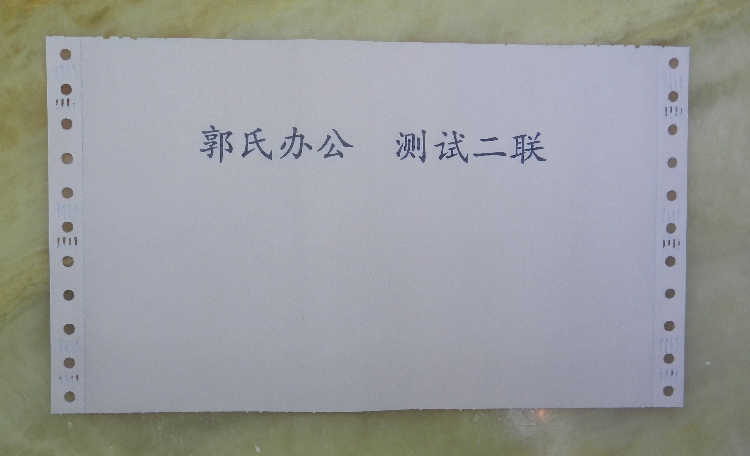 郭氏办公 测试二联